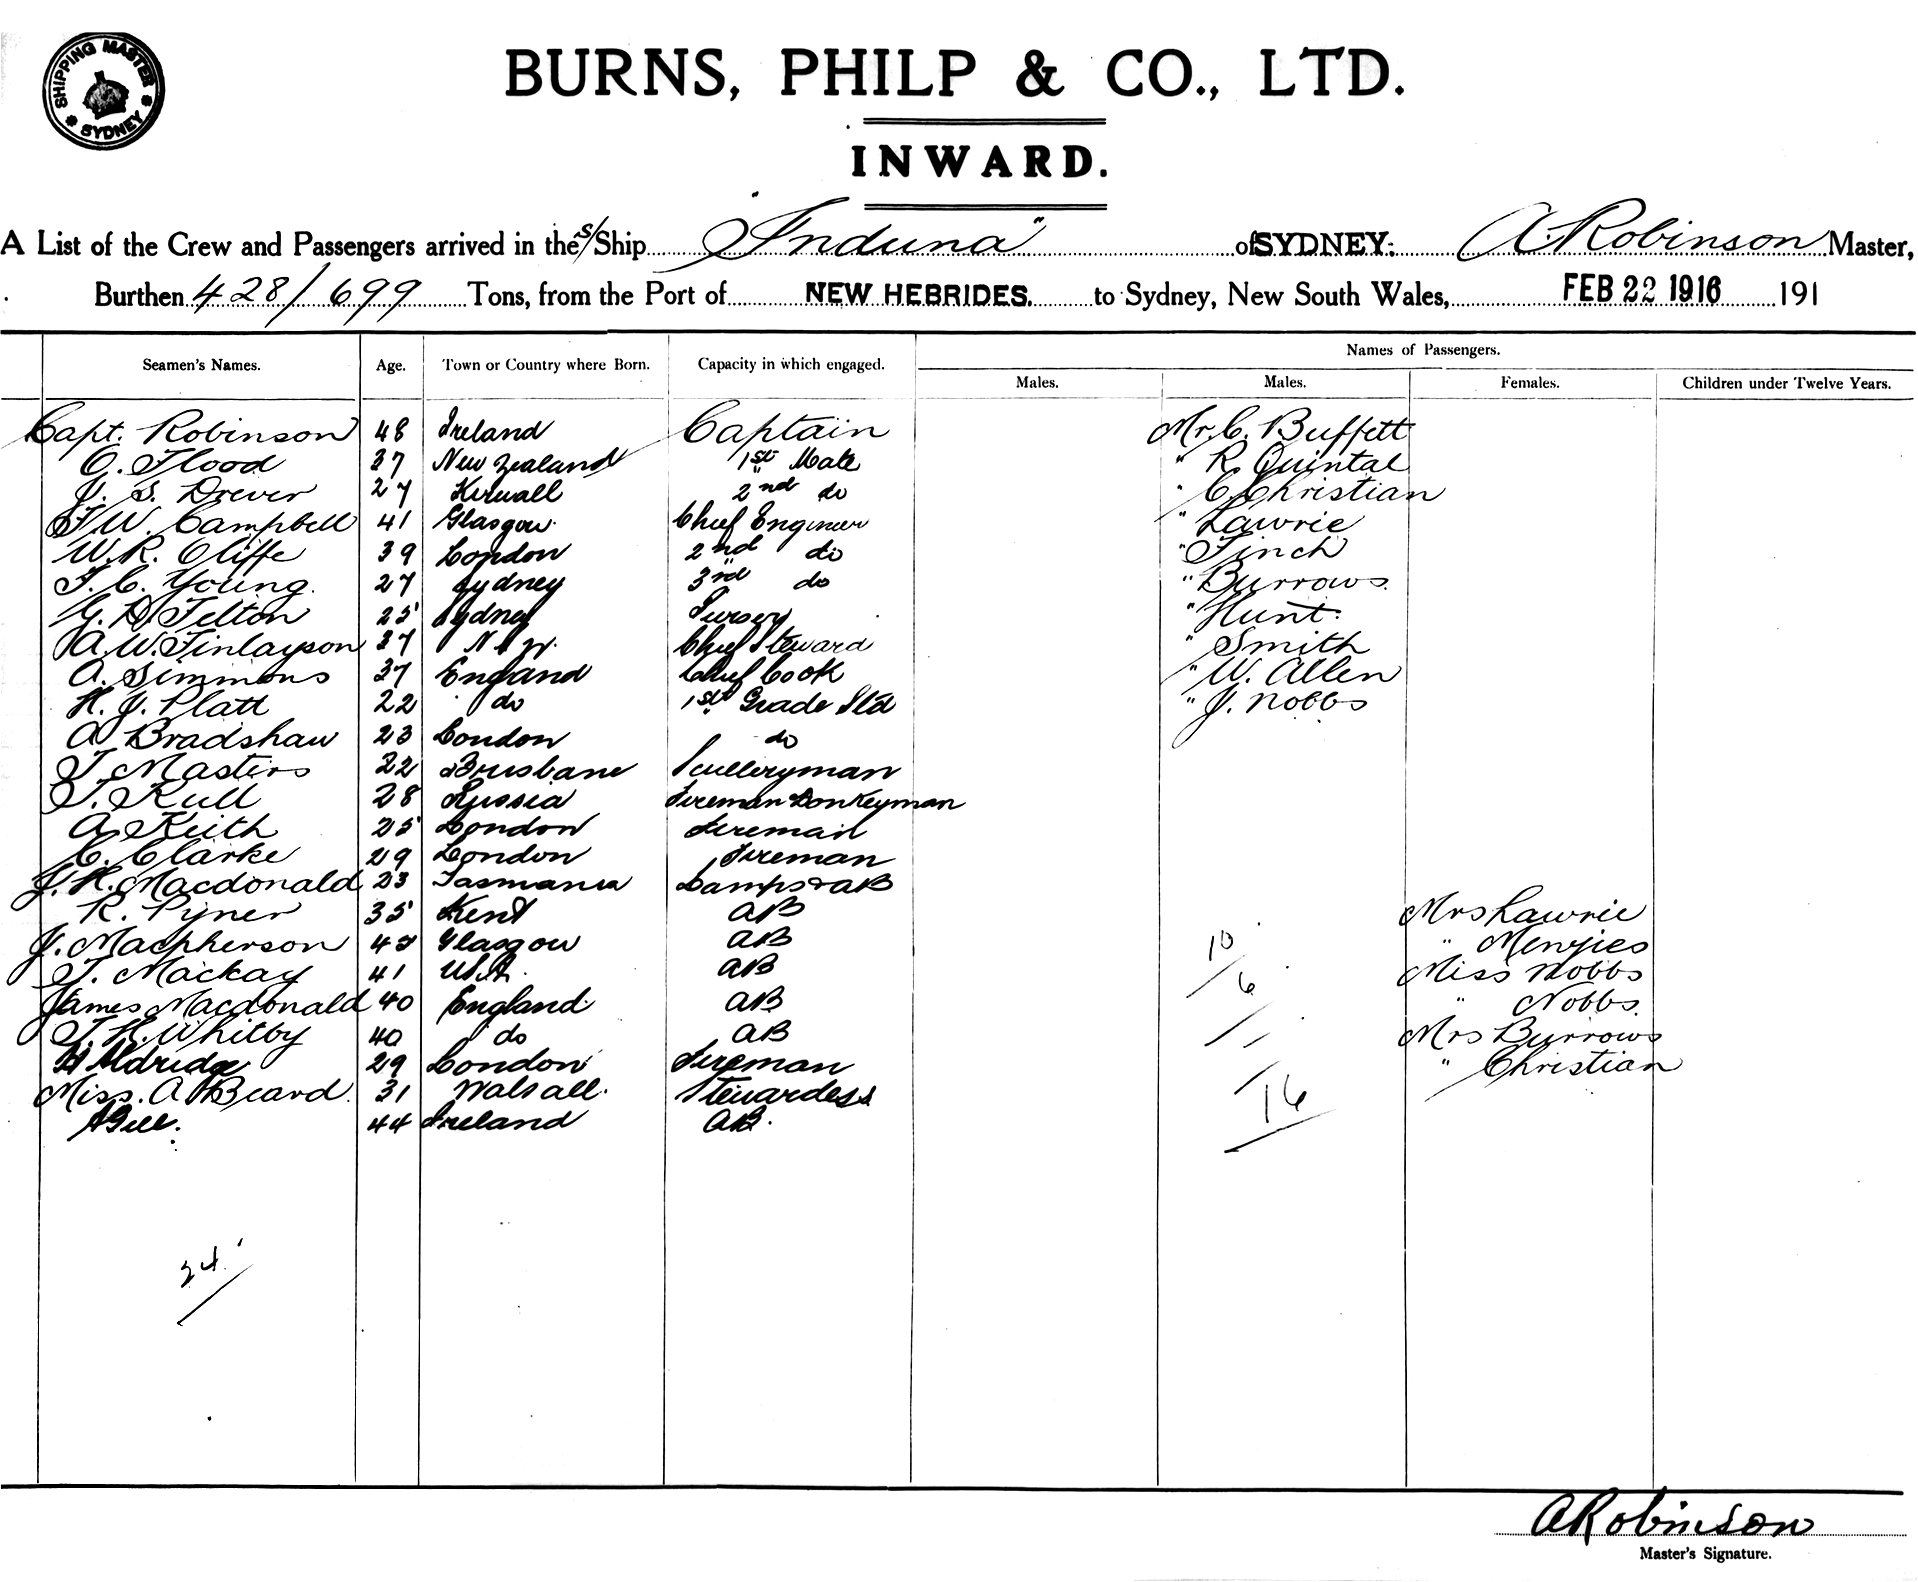 SHIPPING MASTER
SYDNEY
BURNS, PHILP & CO., LTD.
INWARD.
A List of the Crew and Passengers arrived in the S/Ship "Induna" of SYDNEY: A. Robinson Master,
Burthen 428/699 Tons, from the Port of NEW HEBRIDES. to Sydney, New South Wales, FEB 22 1916 191
Names of Passengers.
Seamen's Names. Age. Town or Country where Born. Capacity in which engaged. Males. Males. Females. Children under Twelve Years.
Capt. Robinson 48 Ireland Captain Mr. C. Buffett
C. Flood 37 New Zealand 1st Mate " R Quintal
J. S. Drever 27 Kirwall 2nd do " C Christian
F W. Campbell 41 Glasgow Chief Engineer " Lawrie
W. R. Cliffe 39 London 2nd do " Finch
F. C. Young 27 Sydney 3rd do " Burrows
G. D. Felton 25 Sydney Purser " Hunt
A. W. Finlayson 37 Chief Steward " Smith
A. Simmons 37 England Chief Cook " W. Allen
H. J. Platt 22 do 1st Grade Std " J. Nobbs
A Bradshaw 23 London do
T Masters 22 Brisbane Sculleryman
T. Kull 28 Russia Fireman Donkeyman
A. Keith 25 London Fireman
C. Clarke 29 London Fireman
J. H. Macdonald 23 Tasmania Lamps & AB
R. Pyner 35 Kent AB Mrs Lawrie
J. Macpherson 42 Glasgow AB 10 " Menzies
T. Mackay 41 U.S.A. AB 6 Miss Nobbs
James Macdonald 40 England AB " Nobbs
T. H. Whitby 40 do AB Mrs Burrows
H Aldridge 29 London Fireman " Christian
Miss. A Beard 31 Walsall Stewardess 16
A Gill. 44 Ireland AB.
24
A Robinson
Master's Signature.